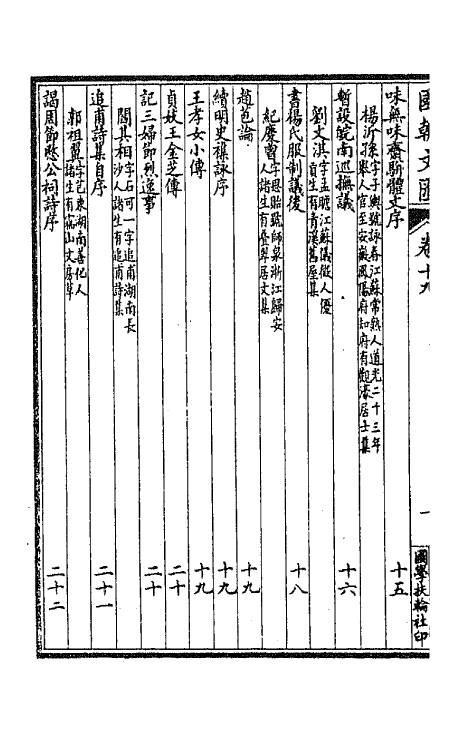 國朝文匯 卷十九 一 國學扶輪社印
味無味齋駢體文序 十五
楊沂孫 字子輿號詠春江蘇常熟人道光二十三年舉人官至安徽鳳陽府知府有觀濠居士集
暫設皖南巡撫議 十六
劉文淇 字孟瞻江蘇儀徵人優貢生有青溪舊屋集
書楊氏服制議後 十八
紀慶曾 字思貽號師泉浙江歸安人諸生有疊翠居文集
趙苞論 十九
續明史襍詠序 十九
王孝女小傳 十九
貞妓王金芝傳 二十
記三婦節烈逸事 二十
閻其相 字石可一字追甫湖南長沙人諸生有追甫詩集
追甫詩集自序 二十一
郭祖翼 字芑東湖南善化人諸生有龍山文房草
謁周節愍公祠詩序 二十二